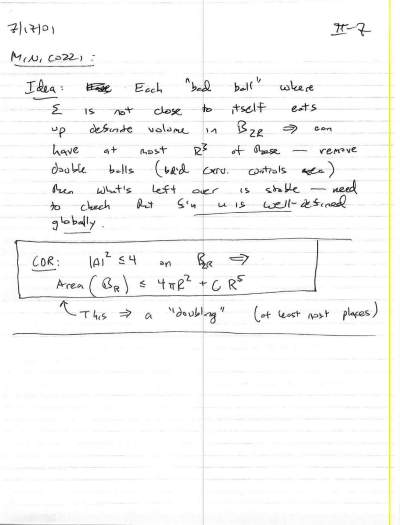 7/17/01 II-7
MINICOZZI:
Idea: Each "bad ball" where
Σ is not close to itself eats
up definite volume in B_2R ⇒ can
have at most R³ of these — remove
double balls (bd'd curv. controls area)
then what's left over is stable — need
to check that Sin u is well-defined
globally.
COR: |A|² ≤ 4 on B_2R ⇒
Area (B_R) ≤ 4πR² + C R⁵
This ⇒ a "doubling" (at least most places)